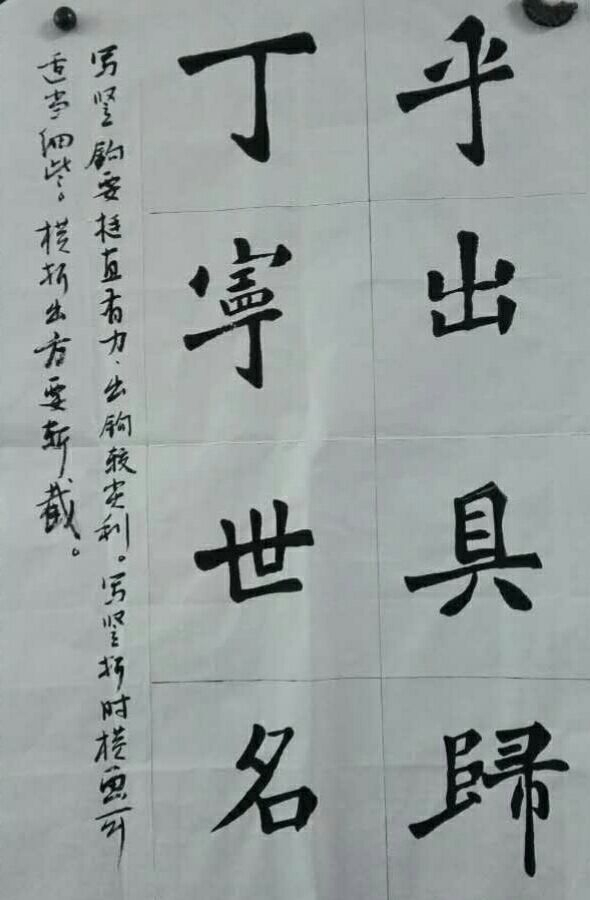 乎出具歸
丁寧世名
写竖鈎要挺直有力.出鈎较尖利。写竖折时横画可
适当细些。横折出方要斩截。